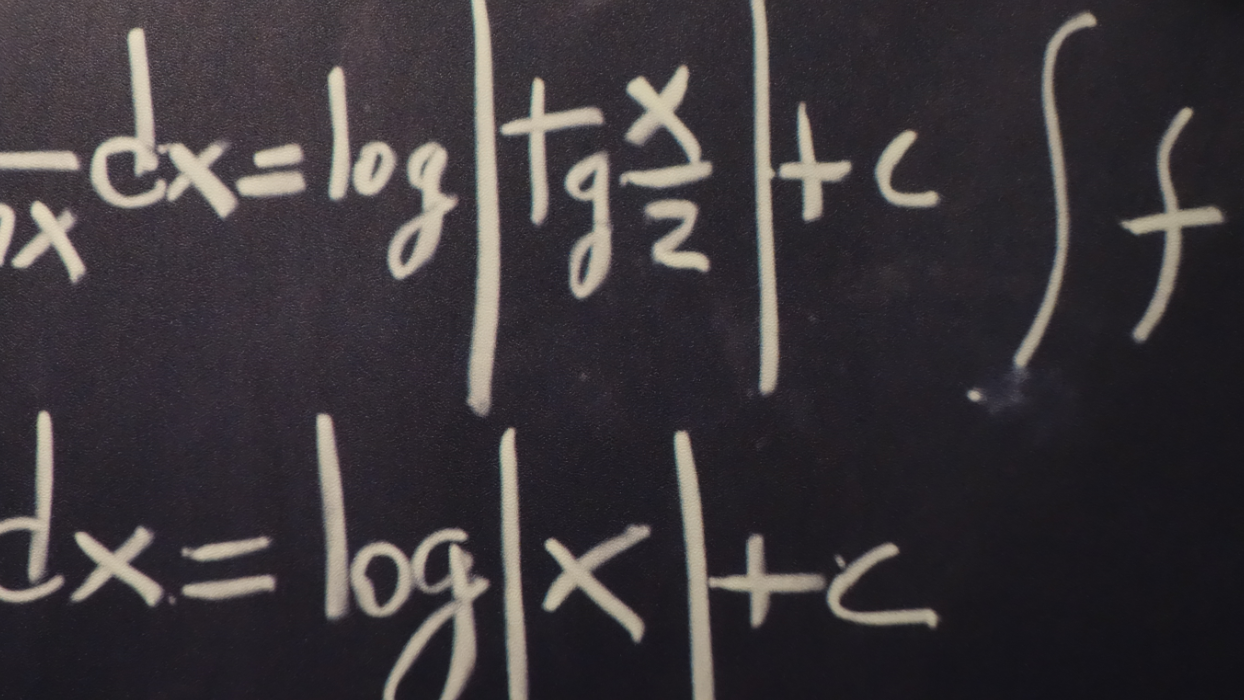 dx = log |tg x/2| + c ∫ f
dx = log |x| + c